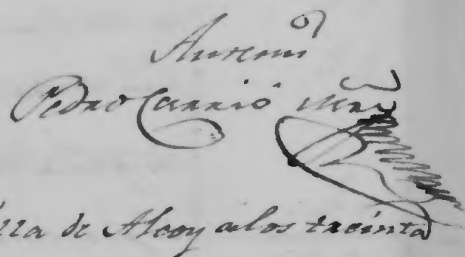 Antemi
Pedro Carrió
de Alcoy a los treinta